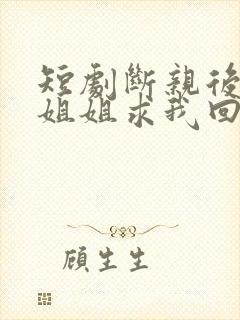 短劇斷親後
姐姐求我回
顧生生